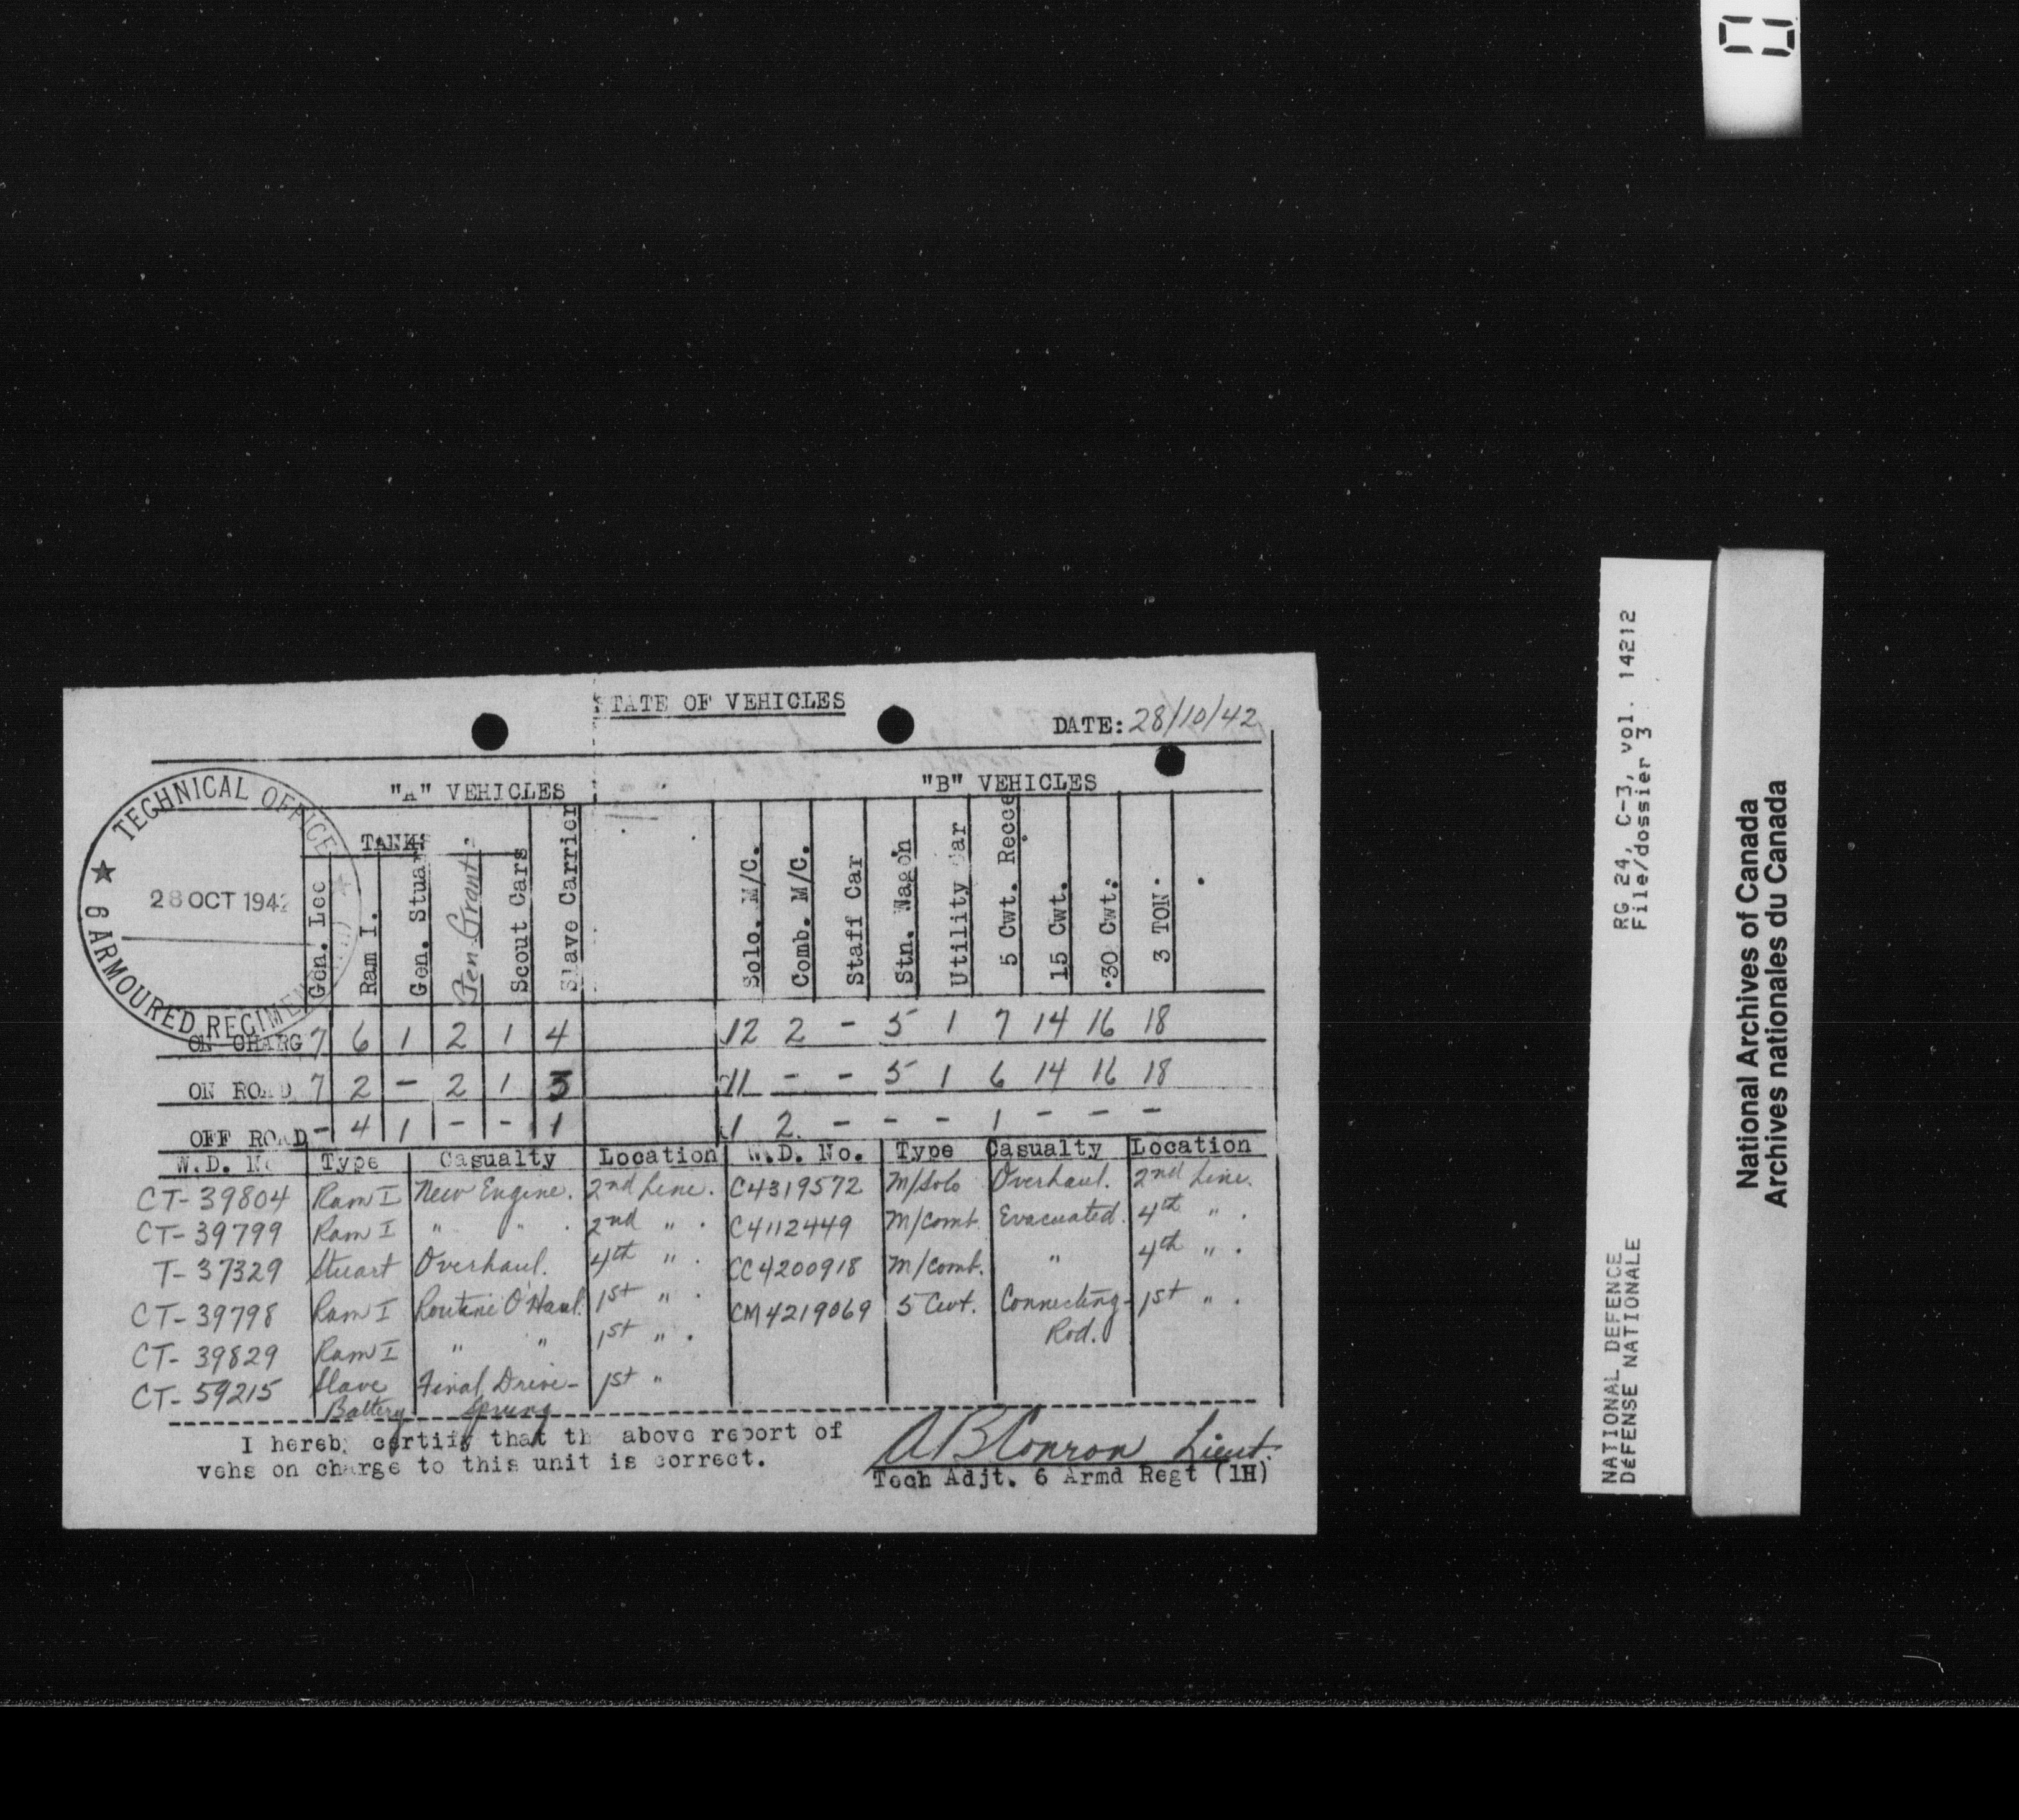 STATE OF VEHICLES
DATE: 28/10/42
"A" VEHICLES "B" VEHICLES
TECHNICAL OFFICE
★ 6 ARMOURED REGIMENT
28 OCT 1942
TANKS
Gen. Lee
Ram I.
Gen. Stuar
Gen Grant
Scout Cars
Slave Carrier
Solo. M/C.
Comb. M/C.
Staff Car
Stn. Wagon
Utility Car
5 Cwt. Recce
15 Cwt.
.30 Cwt.
3 TON.
ON CHARG 7 6 1 2 1 4 12 2 - 5 1 7 14 16 18
ON ROAD 7 2 - 2 1 3 11 - - 5 1 6 14 16 18
OFF ROAD - 4 1 - - 1 1 2 - - - 1 - - -
W.D. No Type Casualty Location W.D. No. Type Casualty Location
CT-39804 Ram I New Engine. 2nd Line. C4319572 M/Solo Overhaul. 2nd Line.
CT-39799 Ram I " " . 2nd " . C4112449 M/Comb. Evacuated. 4th " .
T-37329 Stuart Overhaul. 4th " . CC4200918 M/Comb. " 4th " .
CT-39798 Ram I Routine O'Haul. 1st " . CM4219069 5 Cwt. Connecting- 1st " .
Rod.
CT-39829 Ram I " " 1st " .
CT-59215 Slave Final Drive- 1st "
Battery Sprung
I hereby certify that th above report of
vehs on charge to this unit is correct.
A B Conron Lieut.
Tech Adjt. 6 Armd Regt (1H)
RG 24, C-3, vol. 14212
File/dossier 3
NATIONAL DEFENCE
DÉFENSE NATIONALE
National Archives of Canada
Archives nationales du Canada